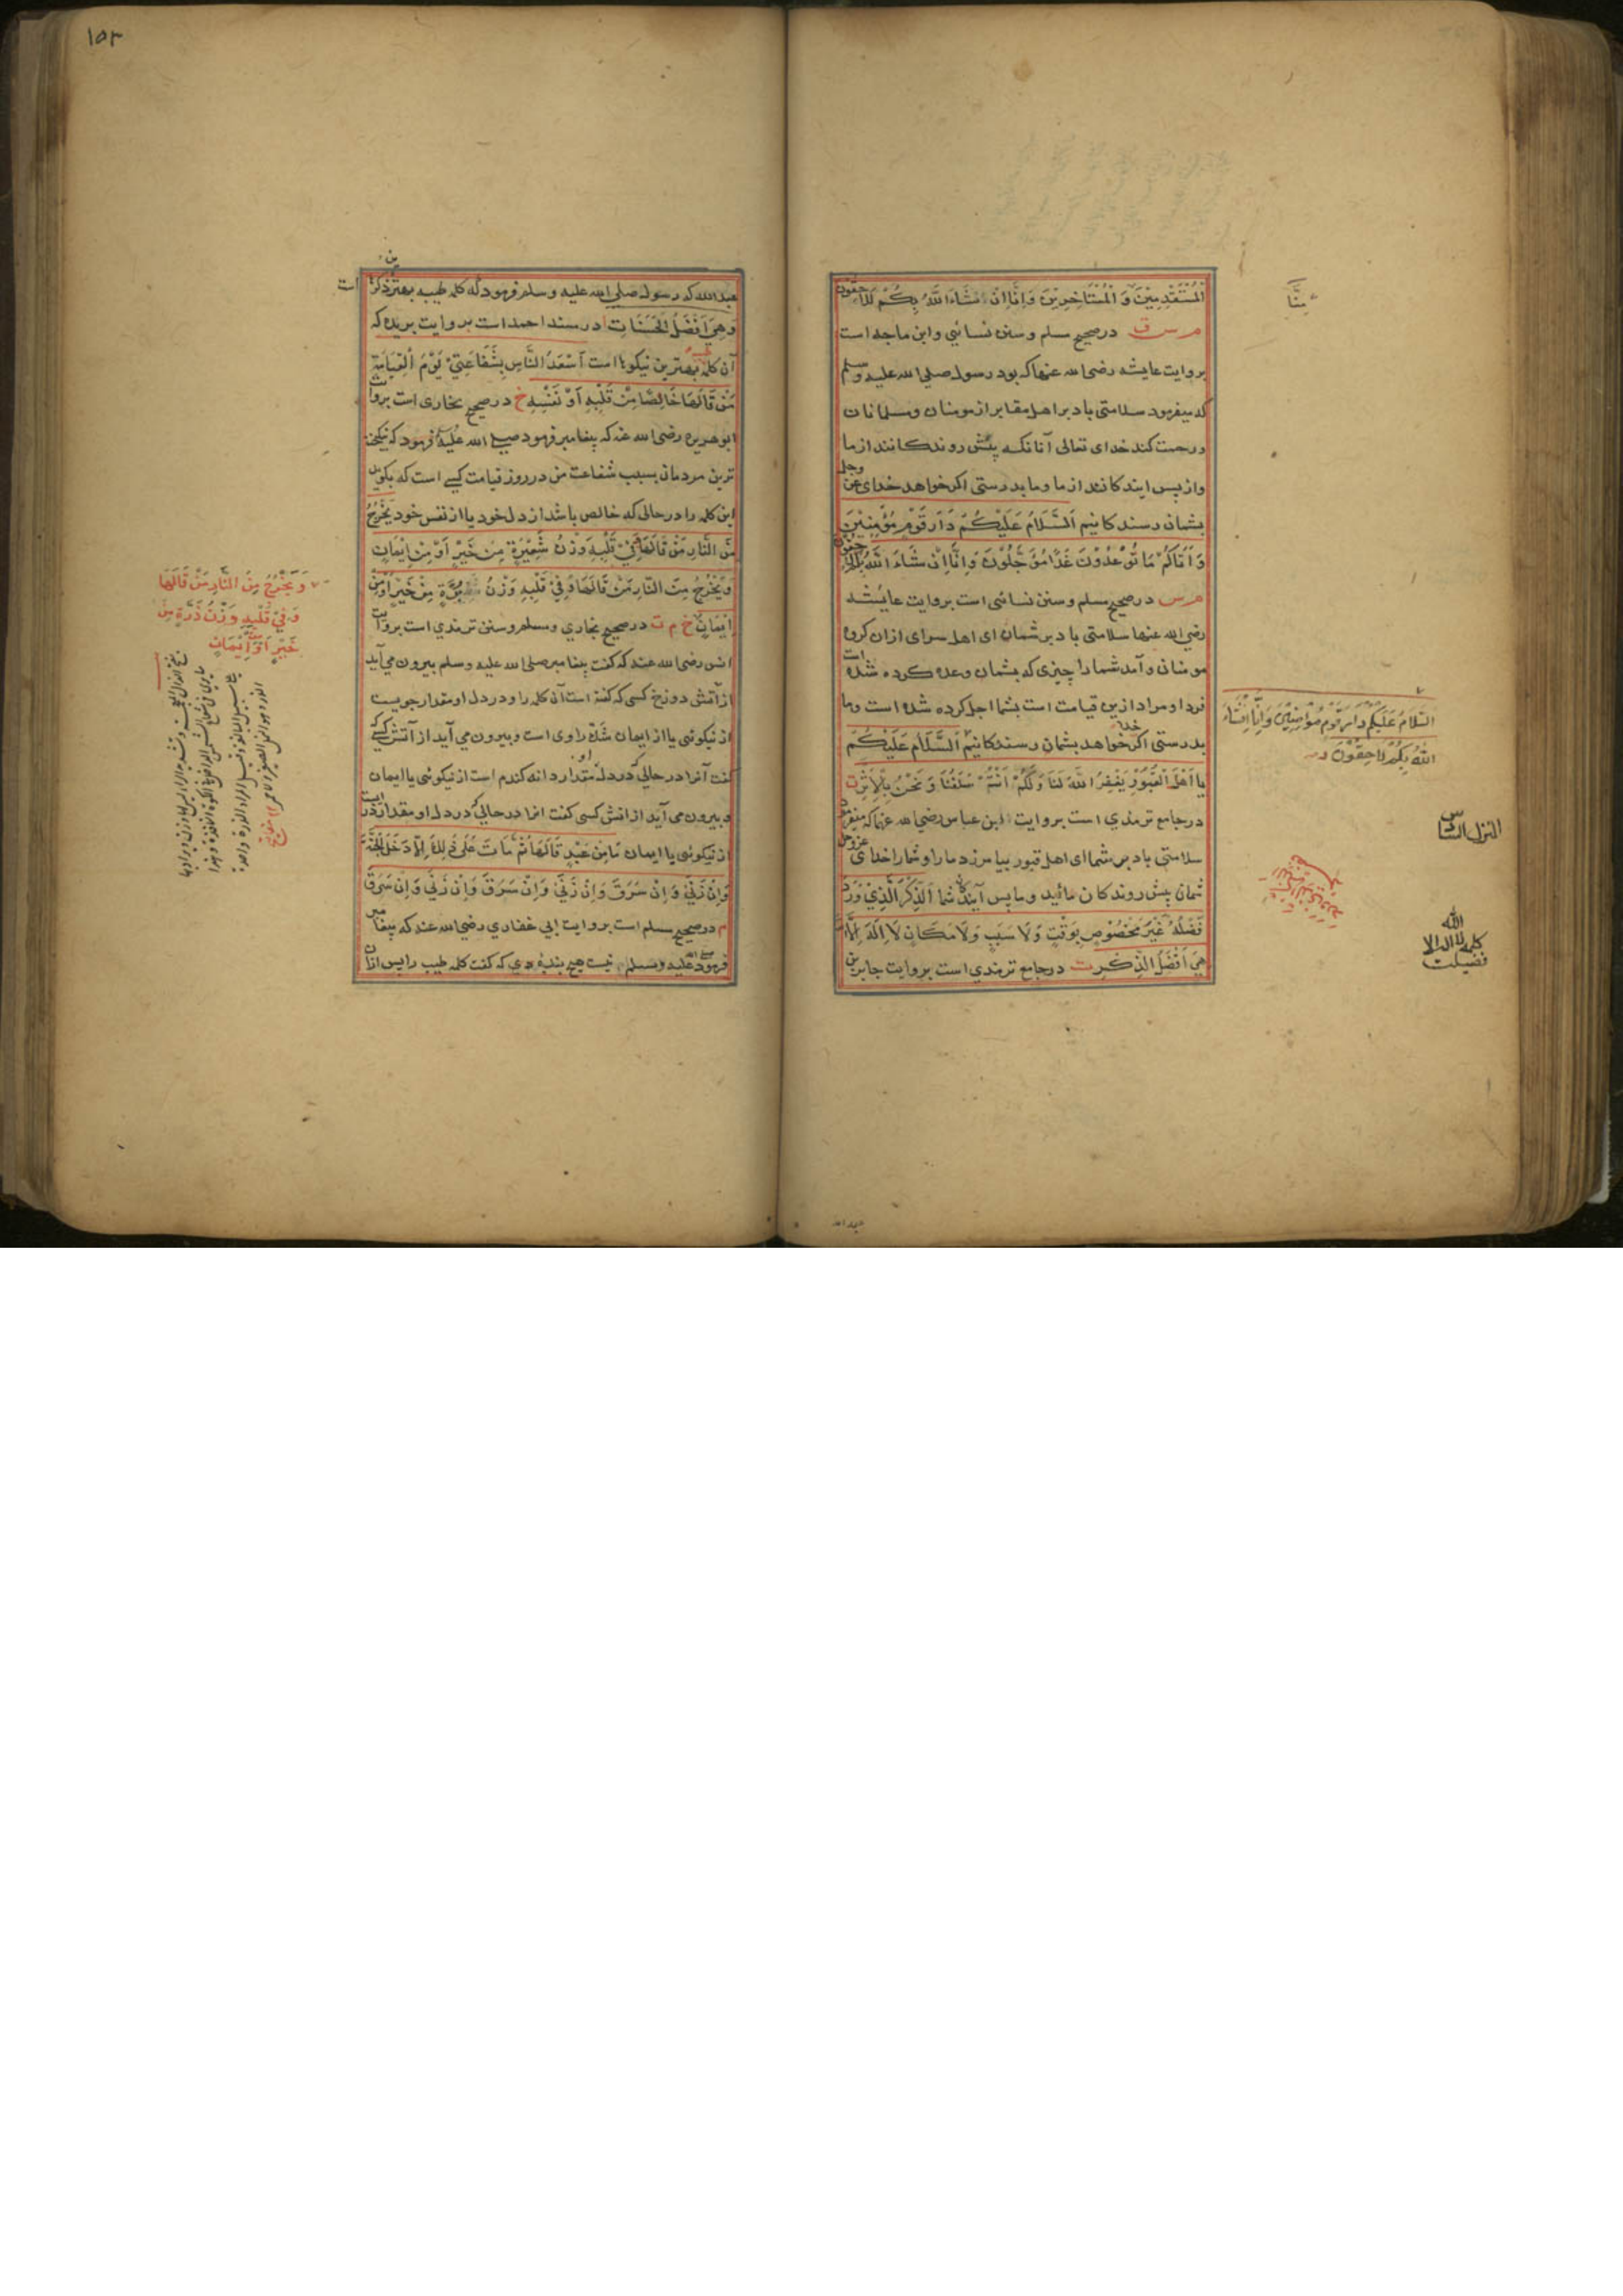 الْمُسْتَقْدِمِيْنَ وَ الْمُسْتَاخِرِيْنَ وَاِنَّا اِنْ شَاءَ اللّٰهُ بِكُمْ لَلَاحِقُوْنَ
م س ق درصحیح مسلم وسنن نسائی وابن ماجه است
بروایت عایشه رضی الله عنها که بود رسول صلی الله علیه وسلم
که میفرمود سلامتی باد بر اهل مقابر از مومنان ومسلمانان
ورحمت کند خدای تعالی آنانکه پیش روندکانند از ما
وازپس ایندکانند از ما وما بدرستی اکر خواهد خدای عز وجل
بشمان رسندکانیم اَلسَّلَامُ عَلَيْكُمْ دَارَ قَوْمٍ مُؤْمِنِيْنَ
وَ اَتَاكُمْ مَا تُوْعَدُوْنَ غَدًا مُؤَجَّلُوْنَ وَاِنَّا اِنْ شَاءَ اللّٰهُ بِكُمْ لَاحِقُوْنَ
م س درصحیح مسلم وسنن نسائی است بروایت عایشه
رضی الله عنها سلامتی باد بر شمان ای اهل سرای ازان کروه
مومنانی وآمد شما را چیزی که بشمان وعده کرده شده است
فردا ومراد ازین قیامت است بشما اجل کرده شده است وما
بدرستی اکر خواهد خدا بشمان رسندکانیم اَلسَّلَامُ عَلَيْكُمْ
يا اَهْلَ الْقُبُوْرِ يَغْفِرُ اللّٰهُ لَنَا وَلَكُمْ اَنْتُمْ سَلَفُنَا وَنَحْنُ بِالْاَثَرِ ت
درجامع ترمذی است بروایت ابن عباس رضی الله عنهما که میفرمود
سلامتی باد بر شما ای اهل قبور بیامرزد ما را وشما را خدای عزوجل
شمان پیش روندکان مائید وما پس آیندکان شما اَلذِّكْرُ الَّذِيْ وَرَدَ
فَضْلُهُ غَيْرَ مَخْصُوْصٍ بِوَقْتٍ وَلَا سَبَبٍ وَلَا مَكَانٍ لَا اِلٰهَ اِلَّا اللّٰهُ
هِيَ اَفْضَلُ الذِّكْرِ ت درجامع ترمذی است بروایت جابر بن
مِنَّا
السَّلَامُ عَلَيْكُمْ دَارَ قَوْمٍ مُؤْمِنِيْنَ وَاِنَّا اِنْ شَاءَ
اللّٰهُ بِكُمْ لَاحِقُوْنَ
المنزل السادس
فضیلت کلمه لا اله الا الله
عبد الله
١٥٣
عبد الله که رسول صلی الله علیه وسلم فرمود که کلمه طیبه بهترین ذکر است
وَهِيَ اَفْضَلُ الْحَسَنَاتِ ا درمسند احمد است بروایت بریده که
آن کلمه بهترین نیکویها است اَسْعَدُ النَّاسِ بِشَفَاعَتِيْ يَوْمَ الْقِيَامَةِ
مَنْ قَالَهَا خَالِصًا مِنْ قَلْبِهِ اَوْ نَفْسِهِ خ درصحیح بخاری است بروایت
ابوهریره رضی الله عنه که پیغامبر فرمود صلی الله علیه فرمود که نیکبخت
ترین مردمان بسبب شفاعت من در روز قیامت کسی است که بکوید
این کلمه را درحالی که خالص باشد از دل خود یا از نفس خود يَخْرُجُ
مِنَ النَّارِ مَنْ قَالَهَا وَفِيْ قَلْبِهِ وَزْنُ شَعِيْرَةٍ مِنْ خَيْرٍ اَوْ مِنْ اِيْمَانٍ
وَيَخْرُجُ مِنَ النَّارِ مَنْ قَالَهَا وَفِيْ قَلْبِهِ وَزْنُ بُرَّةٍ مِنْ خَيْرٍ اَوْ مِنْ
اِيْمَانٍ خ م ت درصحیح بخاری ومسلم وسنن ترمذی است بروایت
انس رضی الله عنه که کفت پیغامبر صلی الله علیه وسلم بیرون می آید
از آتش دوزخ کسی که کفته است آن کلمه را ودر دل او مقدار جویست
از نیکوئی یا از ایمان شک راوی است وبیرون می آید از آتش کسی که
کفت آنرا درحالی که در دل او مقدار دانه کندم است از نیکوئی یا ایمان
وبیرون می آید از آتش کسی کفت انرا درحالی که در دل او مقدار ذره است
از نیکوئی یا ایمان مَا مِنْ عَبْدٍ قَالَهَا ثُمَّ مَاتَ عَلٰى ذٰلِكَ اِلَّا دَخَلَ الْجَنَّةَ
وَاِنْ زَنٰى وَاِنْ سَرَقَ وَاِنْ زَنٰى وَاِنْ سَرَقَ وَاِنْ زَنٰى وَاِنْ سَرَقَ
م درصحیح مسلم است بروایت ابی غفاری رضی الله عنه که پیغامبر
فرمود صلی الله علیه وسلم نیست هیچ بندهٔ که کفت کلمه طیب را پس ازان
وَ يَخْرُجُ مِنَ النَّارِ مَنْ قَالَهَا
وَ فِيْ قَلْبِهِ وَزْنُ ذَرَّةٍ مِنْ
خَيْرٍ اَوْ اِيْمَانٍ